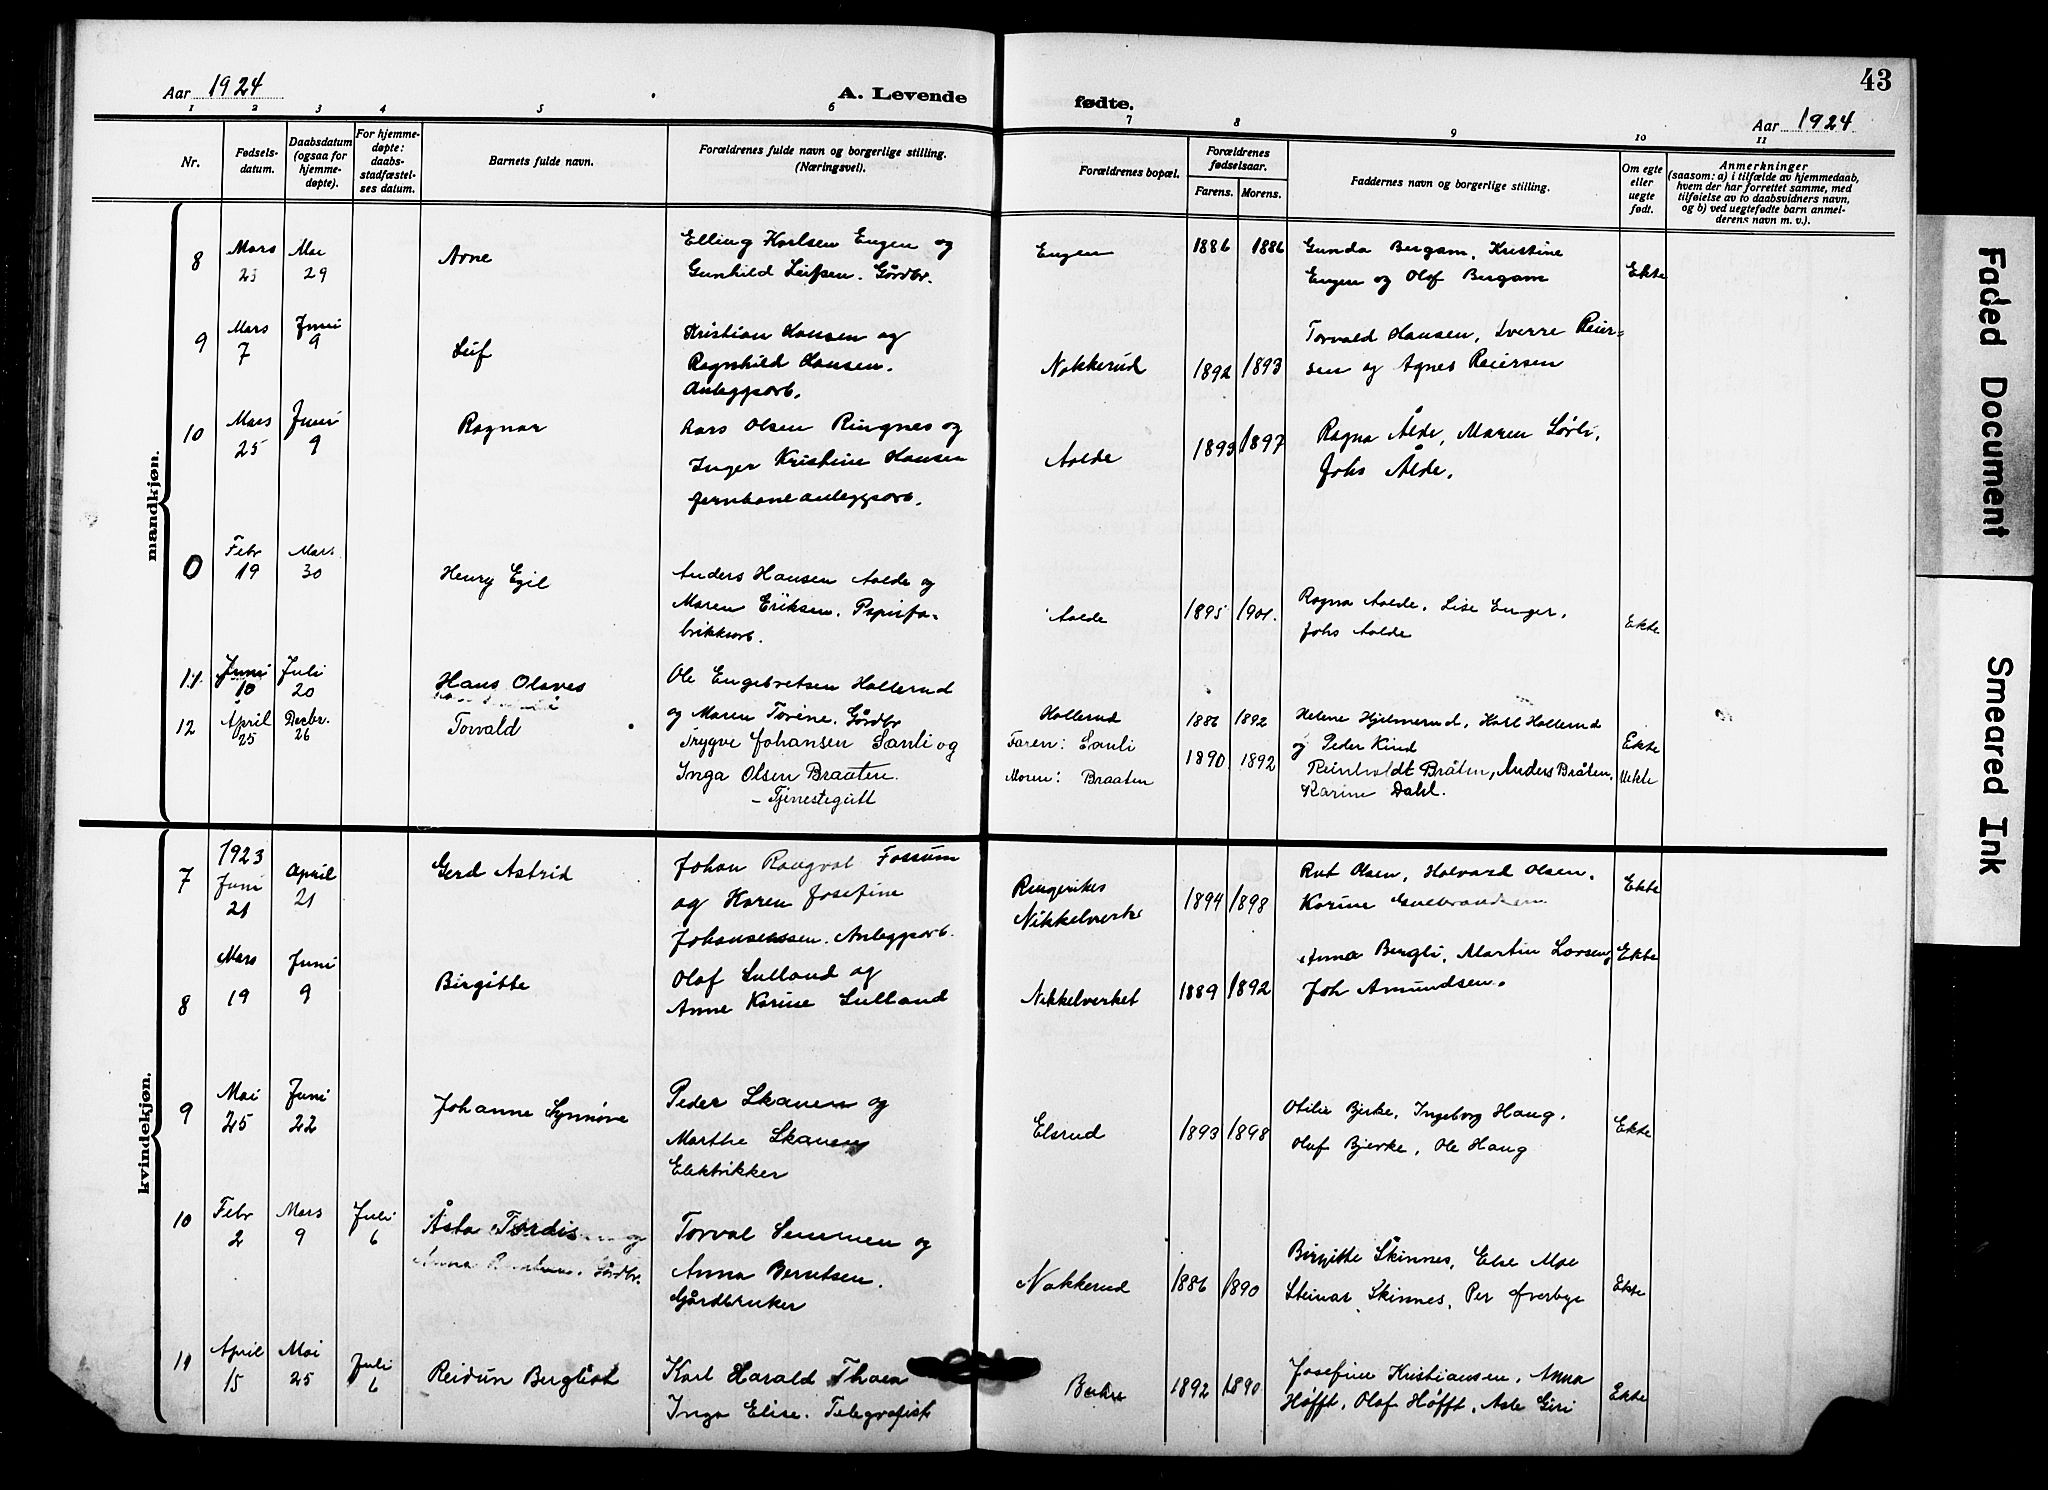 43
Aar 1924
A. Levende fødte.
Aar 1924
1 2 3 4 5 6 7 8 9 10 11
Nr.
Fødsels-
datum.
Daabsdatum
(ogsaa for
hjemme-
døpte).
For hjemme-
døpte:
daabs-
stadfæstel-
ses datum.
Barnets fulde navn.
Forældrenes fulde navn og borgerlige stilling.
(Næringsvei).
Forældrenes bopæl.
Forældrenes
fødselsaar.
Farens. Morens.
Faddernes navn og borgerlige stilling.
Om egte
eller
uegte
født.
Anmerkninger
(saasom: a) i tilfælde av hjemmedaab,
hvem der har forrettet samme, med
tilføielse av to daabsvidners navn,
og b) ved uegtefødte barn anmel-
derens navn m. v.).
mandkjøn.
8
Mars
23
Mai
29
Arne
Elling Karlsen Engen og
Gunhild Leifsen. Gårdbr.
Engen
1886 1886
Gunda Bergam, Kristine
Engen og Olof Bergam
Ekte
9
Mars
7
Juni
9
Leif
Kristian Hansen og
Ragnhild Hansen.
Anleggsarb.
Nakkerud
1892 1893
Torvald Hansen, Sverre Reier-
sen og Agnes Reiersen
10
Mars
25
Juni
9
Ragnar
Lars Olsen Ringnes og
Inger Kristine Hansen
jernbaneanleggsarb.
Aalde
1893 1897
Ragna Ålde, Maren Sørli,
Johs Ålde.
0
Febr
19
Mars
30
Henry Egil
Anders Hansen Aalde og
Maren Eriksen. Papirfa-
brikkarb.
Aalde
1895 1901.
Ragna Aalde, Lise Enger,
Johs Aalde
Ekte
11.
Juni
10
Juli
20
Hans Olaves
Ole Engebretsen Hollerud
og Maren Torine. Gårdbr
Hollerud
1886 1892
Helene Hjelmerud, Karl Hollerud
og Peder Kind
Ekte
12
April
25
Decbr.
26
Torvald
Trygve Johansen Sanli og
Inga Olsen Braaten.
- Tjenestegutt
Faren: Sanli
Moren: Braaten
1890 1892
Reinholdt Bråten, Anders Bråten,
Karine Dahl.
Uekte
kvindekjøn.
7
1923
Juni
21
April
21
Gerd Astrid
Johan Rangval Fossum
og Karen Josefine
Johansen. Anleggsarb.
Ringerikes
Nikkelverk
1894 1898
Rut Olsen, Halvard Olsen,
Karine Gulbrandsen
Ekte
8
Mars
19
Juni
9
Birgitte
Olaf Sulland og
Anne Karine Sulland
Nikkelverket
1889 1892
Anna Bergli, Martin Larsen,
Joh Amundsen.
Ekte
9
Mai
25
Juni
22
Johanne Synnøve
Peder Skauen og
Marthe Skauen
Elektrikker
Elsrud
1893 1898
Otilie Bjerke, Ingeborg Haug.
Oluf Bjerke, Ole Haug
Ekte
10
Febr
2
Mars
9
Juli
6
Åsta Tordis
Torval Semmen og
Anna Berntsen.
Gårdbruker
Nakkerud
1886 1890
Birgitte Skinnes, Else Moe
Steinar Skinnes, Per Øverbye
Ekte
11
April
15
Mai
25
Juli
6
Reidun Bergliot
Karl Harald Thoen
Inga Elise. Telegrafist
1892 1890
Josefine Kristiansen, Anna
Høfft, Olaf Høfft, Asle Giri
Ekte
Faded Document
Smeared Ink